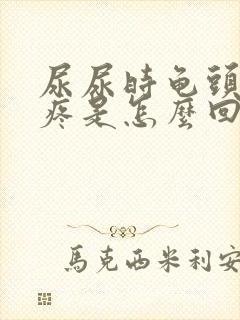 尿尿時龟頭
疼是怎麼回
馬克西米利安